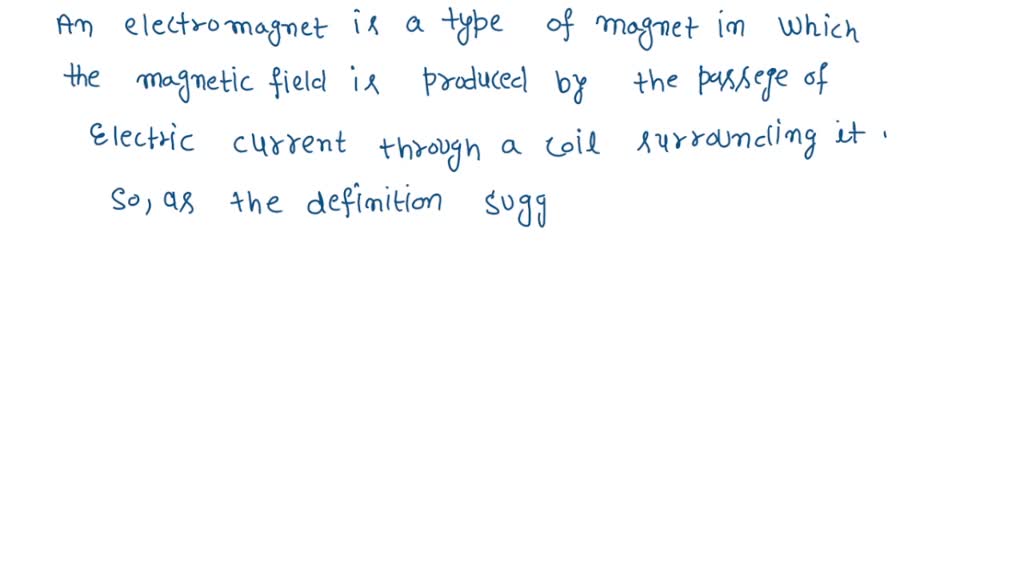 An electromagnet is a type of magnet in which
the magnetic field is produced by the passege of
Electric current through a coil surrounding it.
So, as the definition sugg